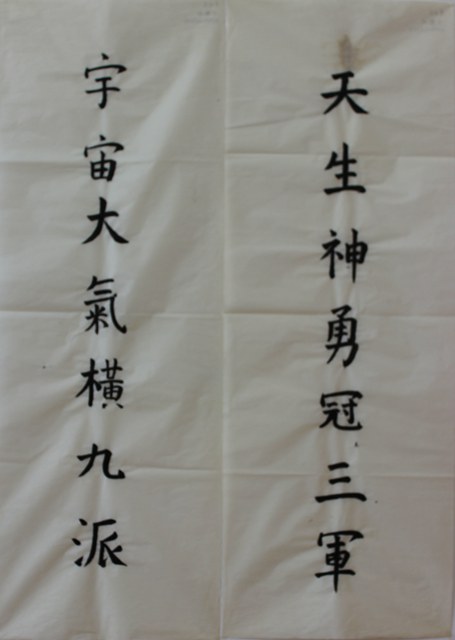 天生神勇冠三軍
宇宙大氣橫九派